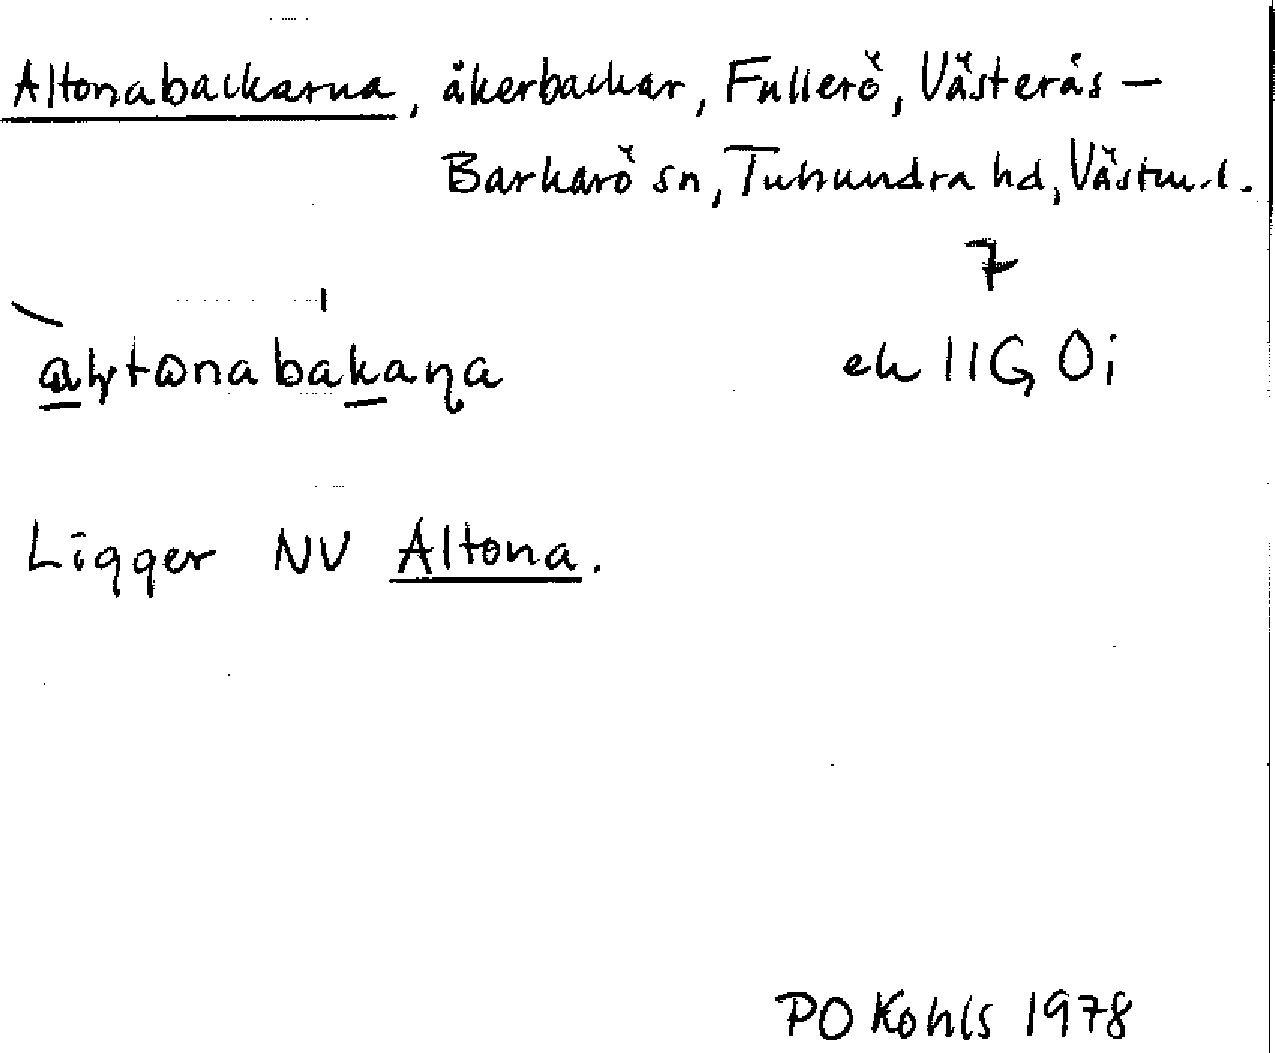 Altonabackarna, åkerbackar, Fullerö, Västerås –
Barkarö sn, Tuhundra hd, Västm.l.
7
ek 11G 0i
Ligger NV Altona.
PO Kohls 1978